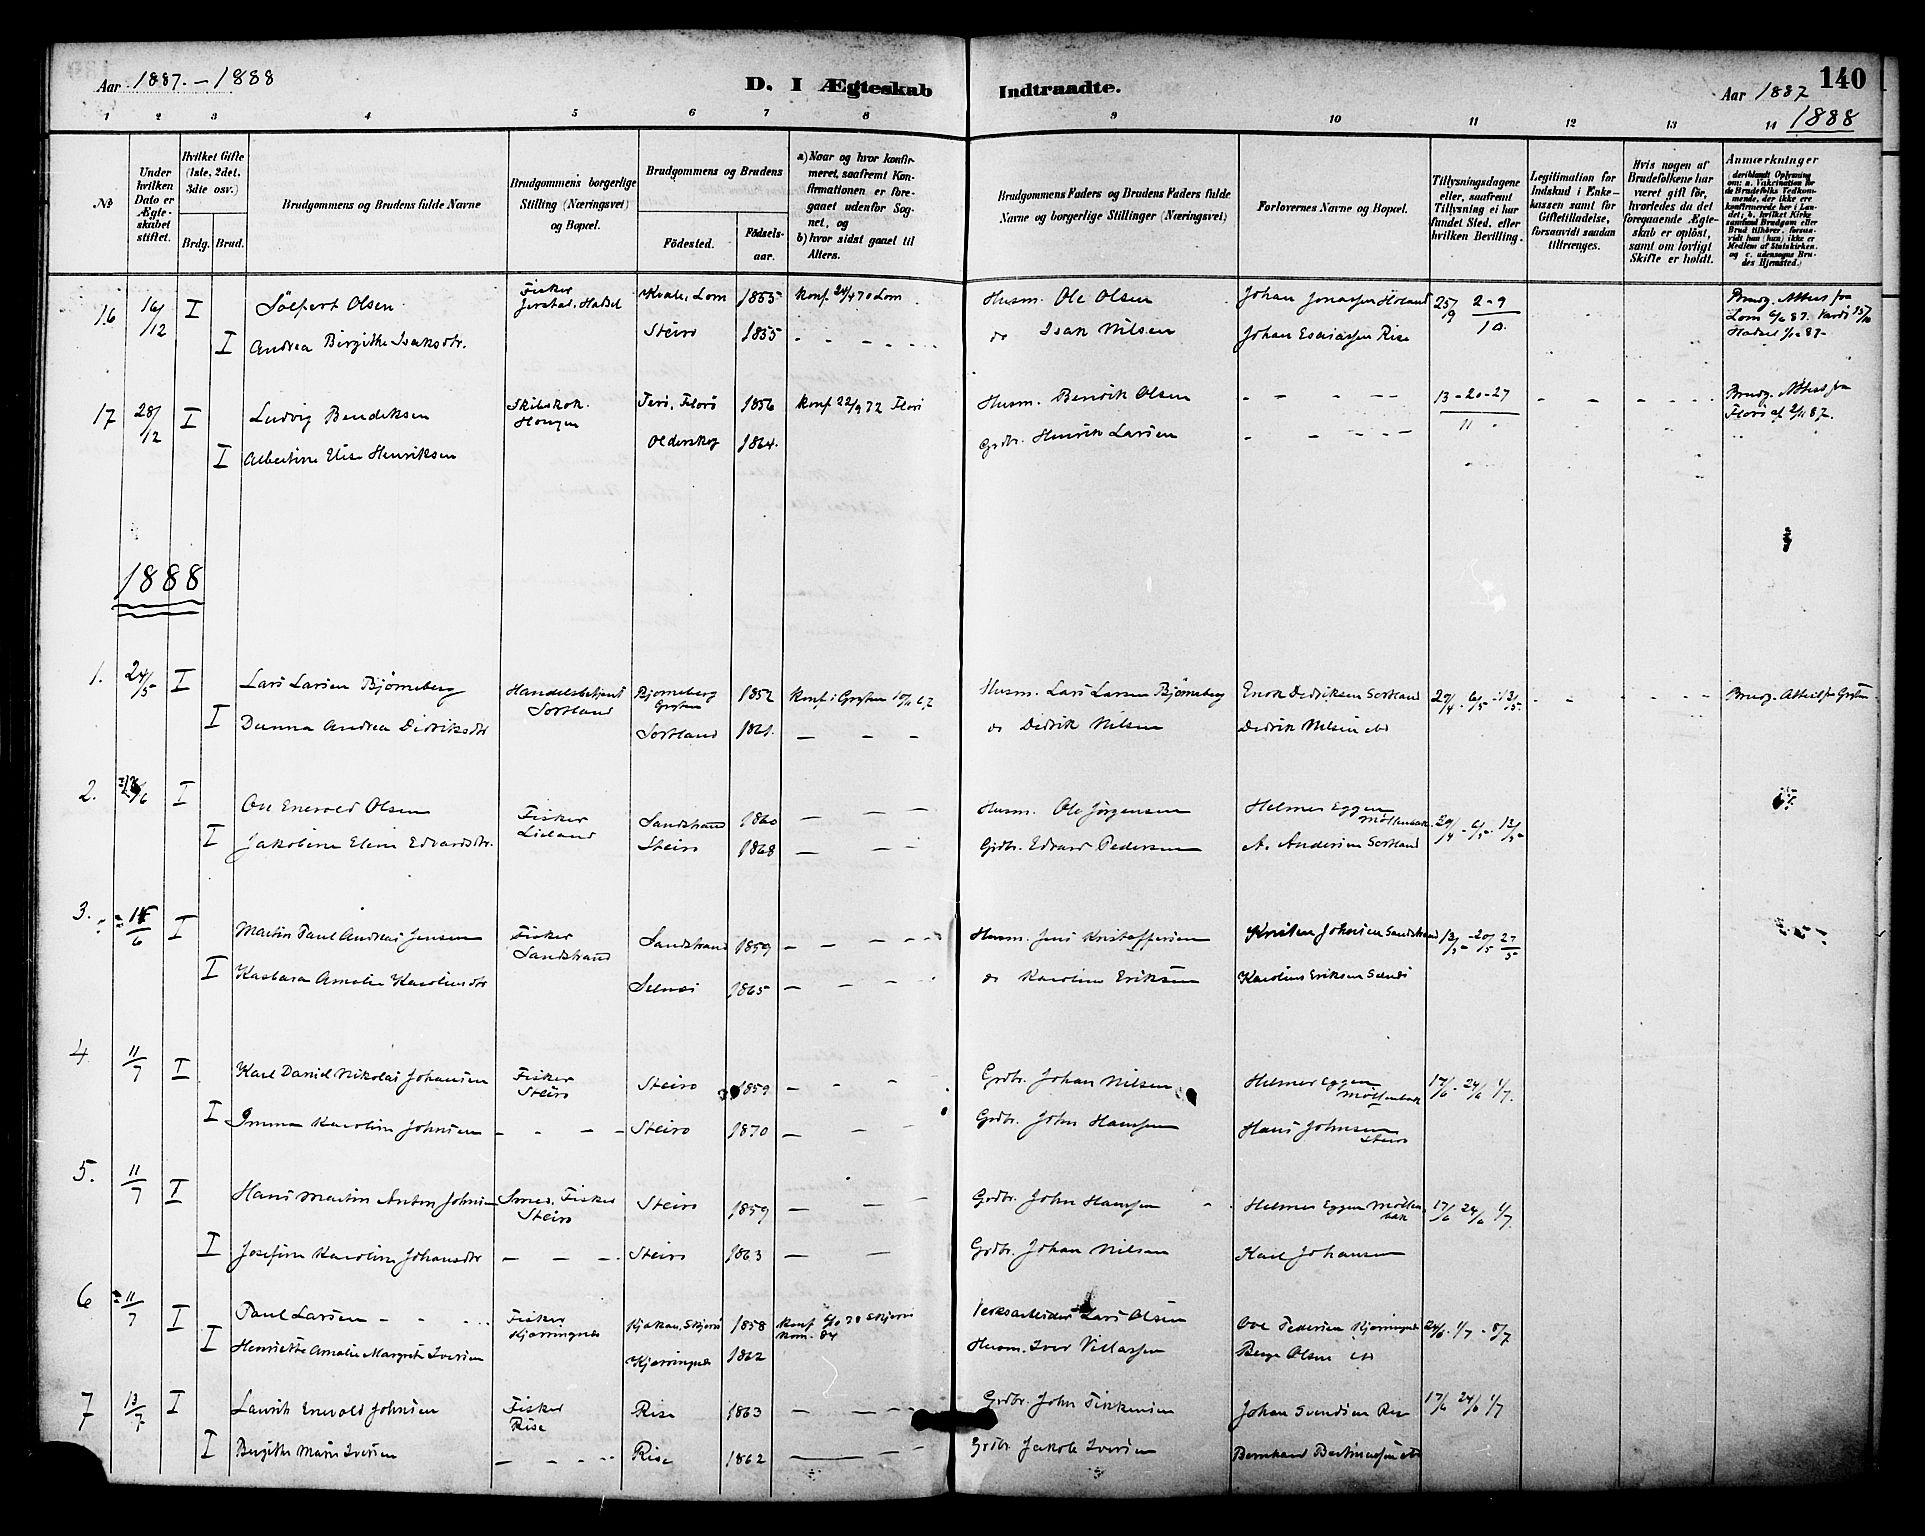 Aar 1887. - 1888
D. I Ægteskab Indtraadte.
140
Aar 1887
1888
1 2 3 4 5 6 7 8 9 10 11 12 13 14
No
Under hvilken Dato er Ægteskabet stiftet.
Hvilket Gifte (1ste, 2det, 3die osv.)
Brdg. Brud.
Brudgommens og Brudens fulde Navne
Brudgommens borgerlige Stilling (Næringsvei) og Bopæl.
Brudgommens og Brudens
Födested.
Födselsaar.
a) Naar og hvor konfirmeret, saafremt Konfirmationen er foregaaet udenfor Sognet, og
b) hvor sidst gaaet til Alters.
Brudgommens Faders og Brudens Faders fulde Navne og borgerlige Stillinger (Næringsvei)
Forlovernes Navne og Bopæl.
Tillysningsdagene eller, saafremt Tillysning ei har fundet Sted, efter hvilken Bevilling.
Legitimation for Indskud i Enkekassen samt for Giftetilladelse, forsaavidt saadan tiltrænges.
Hvis nogen af Brudefolkene har været gift før, hvorledes da det foregaaende Ægteskab er opløst, samt om lovligt Skifte er holdt.
Anmærkninger
16 16/12 I Olsen Fisker Hadsel Kvale, Lom 1855 konf 24/4 70 Lom Husm. Ole Olsen Johan Jonassen 25/9 2-9/10 Brudg. Attest fra Lom
I Andrea Birgithe Isaksdtr. Steiro 1855 - - - do Isak Nilsen Johan Esaiassen Rise
17 28/12 I Ludvig Bendiksen Skibskok Florö 1856 konf 22/9 72 Husm. Olsen - - - 13-20-27/11 Brudg. Attest fra
I Albertine Elise Henriksen 1864. Grdbr. Henrik Larsen - - -
1888
1. 24/5 I Lars Larsen Bjørneberg Handelsbetjent Sortland Bjørneberg Grytten 1852 konf. i Grytten Husm. Lars Larsen Bjørneberg Enok Dedriksen Sortland 29/4 - 6/5 - 13/5 Brudg. Attest fr Grytten
I Danna Andrea Didriksdtr Sortland 1861. - - - do Didrik Nilsen Didrik Nilsen ibd
2. I Ove Enevold Olsen Fisker Sandstrand 1860 - - - Husm. Ole Jørgensen Helmer Eggen Møllenbak 29/4 - 6/5 - 13/5
I Jakobine Eline Edvardsdtr. Steiro 1868 - - - Grdbr. Edvard Pedersen A. Andersen Sortland
3. 15/6 I Martin Paul Andreas Jensen Fisker Sandstrand Sandstrand 1859 - - - Husm. Jens Kristoffersen Kristen Johnsen Sandstrand 13/5 - 20/5 27/5
I Barbara Amalie Karoliusdtr Selnes 1865 - - - do Karolius Eriksen Karolius Eriksen Selnes
4 11/7 I Karl Daniel Nikolai Johansen Fisker Steiro Steiro 1859 - - - Grdbr. Johan Nilsen Helmer Eggen Møllenbak 17/6 - 24/6 1/7.
I Imma Karoline Johnsen - - - Steiro 1870 - - - Grdbr. John Hansen Hans Johnsen Steiro
5. 11/7 I Hans Martin Anton Johnsen Smed, Fisker Steiro Steiro 1859 - - - Grdbr. John Hansen Helmer Eggen Møllenbak 17/6 24/6 1/7.
I Josefine Karoline Johansdtr - - - Steiro 1863 - - Grdbr. Johan Nilsen Karl Johansen
6 11/7 I Paul Larsen - - - Fisker Kjørringnes 1858 konf Verksarbeider Lars Olsen Ove Pedersen Kjørringnes 24/6 - 1/7 - 8/7
I Henriette Amalie Margrete Iversen Kjørringnes 1862 Husm. Iver Villassen Olsen ibd
7 13/7 I Laurits Enevold Johnsen Fisker Rise Rise 1863 - - - Grdbr. John Johan Svendsen Rise 17/6 24/6 1/7
I Birgithe Marie Iversen - - - Rise 1862 - - - Grdbr. Jakob Iversen Bernhard